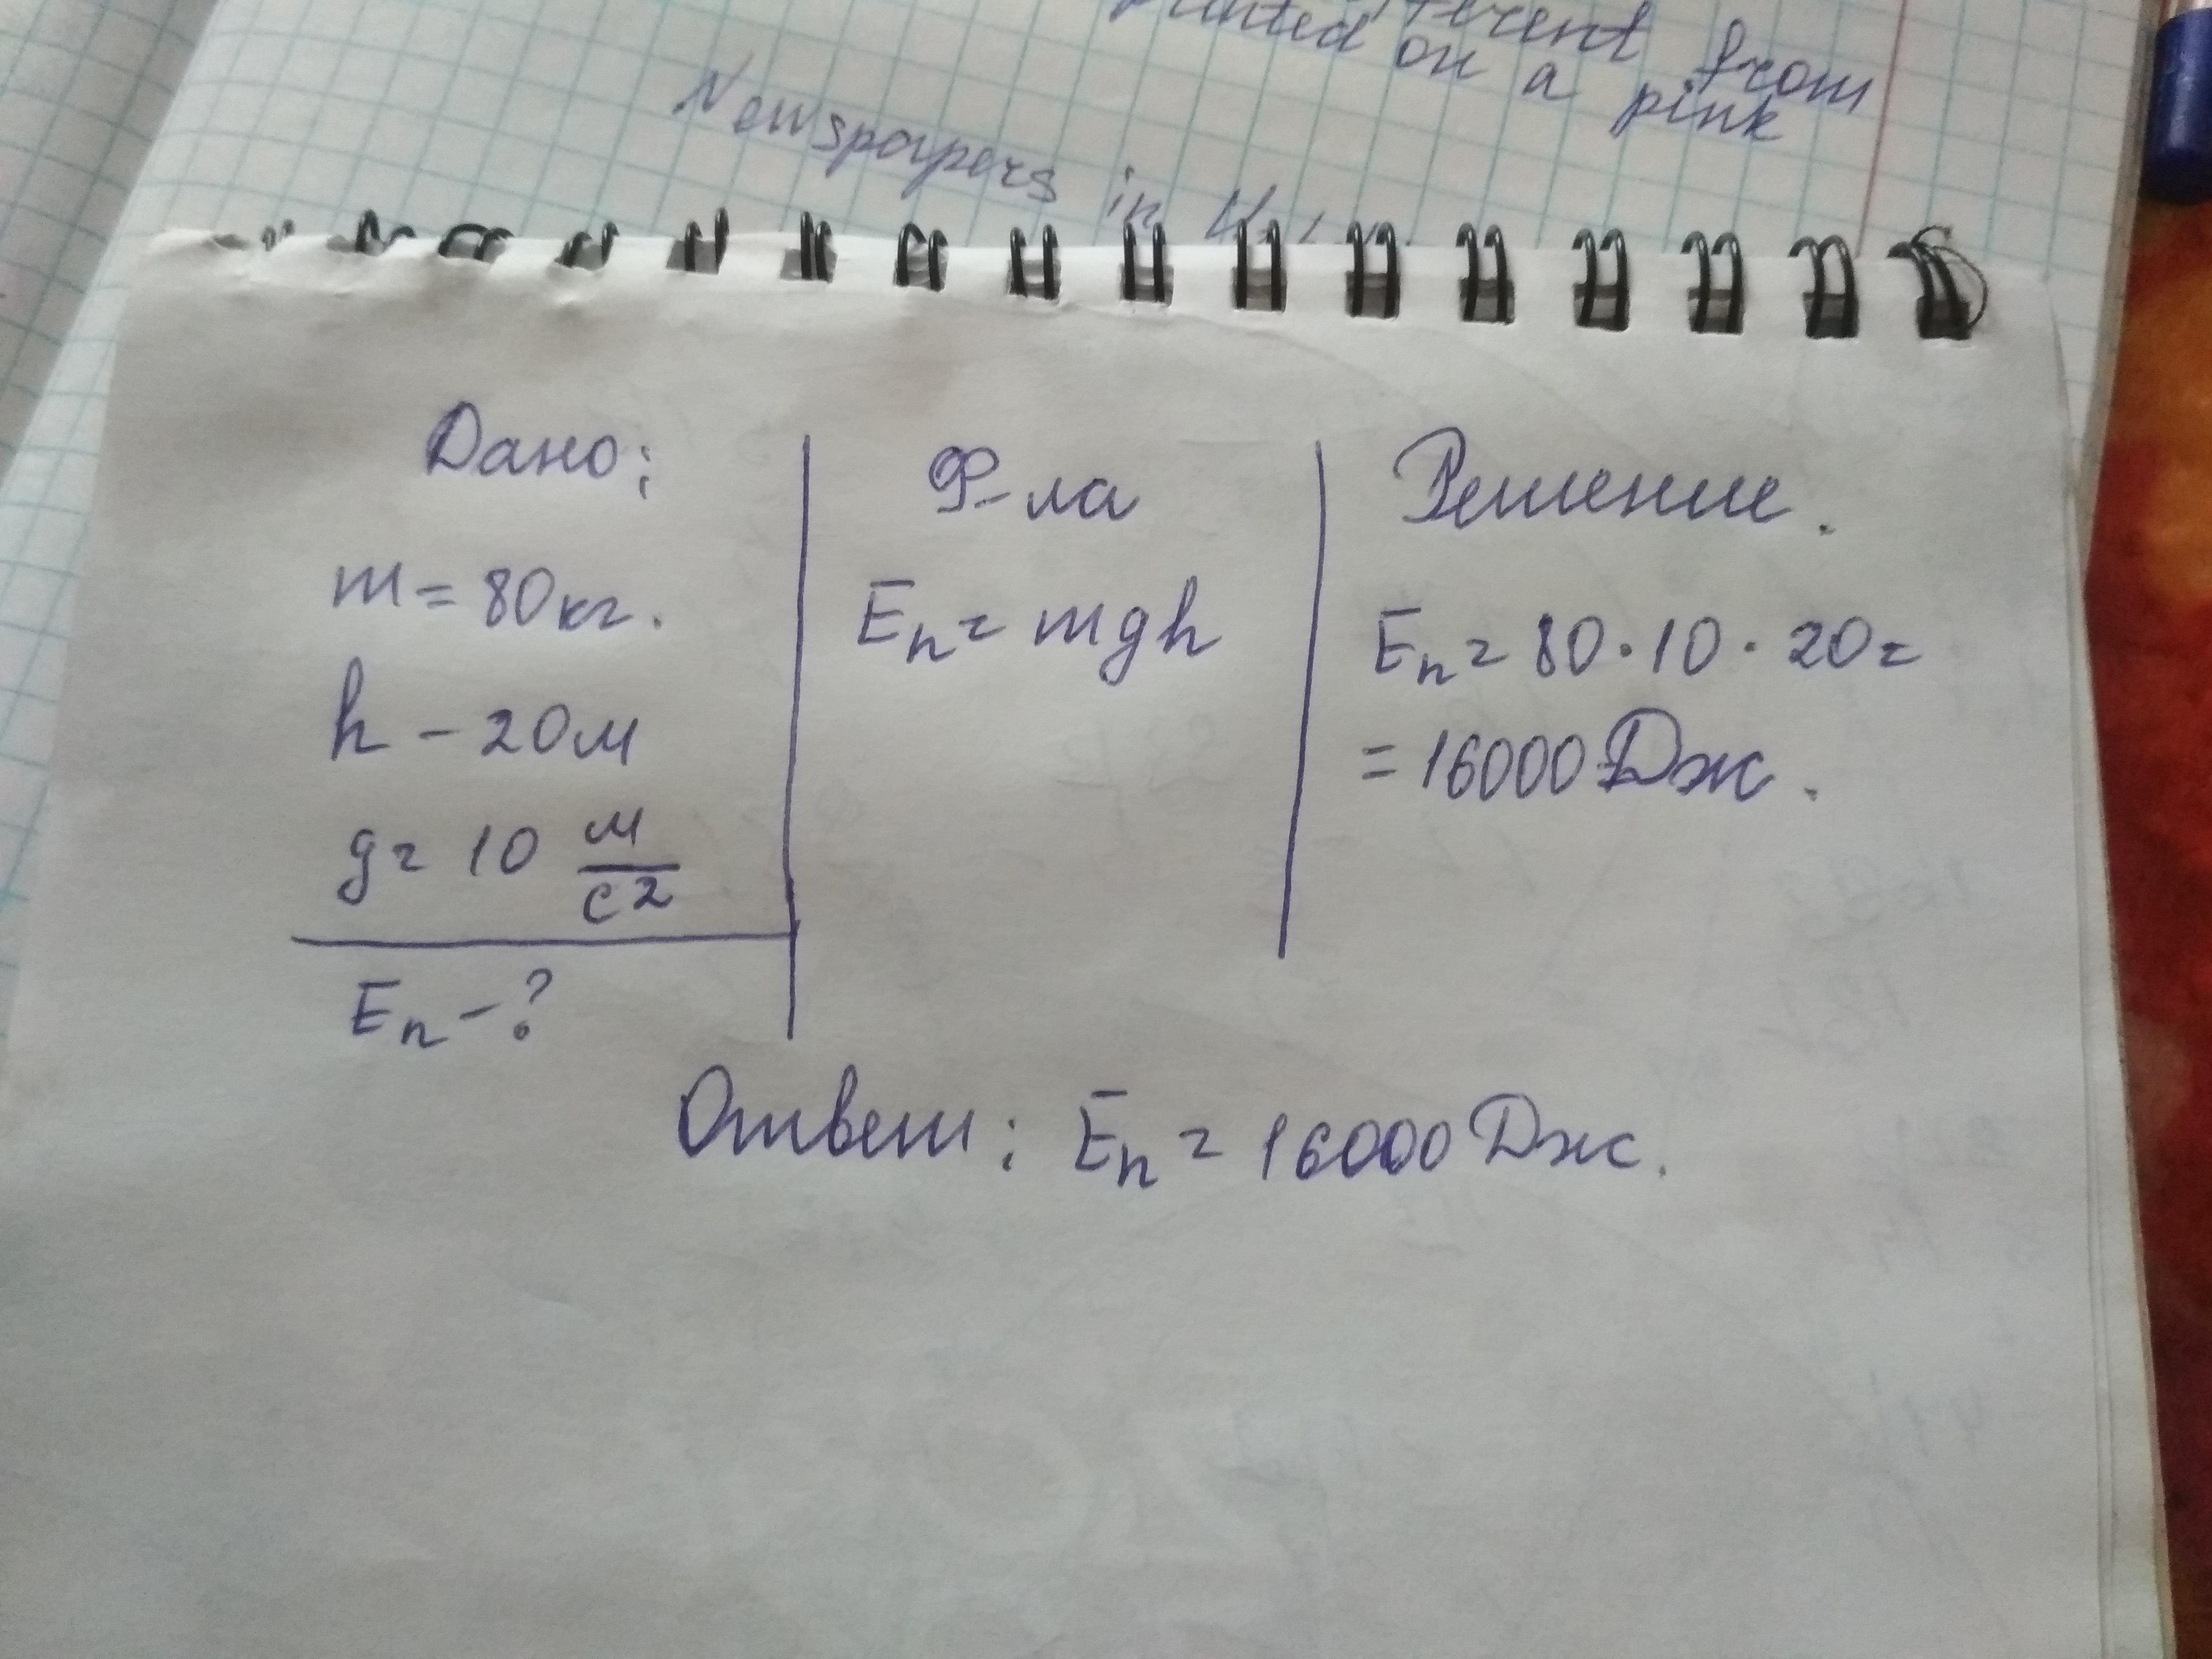 from
printed on a pink
Newspapers in
Дано:
m = 80 кг.
h - 20 м
g = 10 м/с2
Eп - ?
Ф-ла
Eп = mgh
Решение.
Eп = 80 · 10 · 20 =
= 16000 Дж.
Ответ: Eп = 16000 Дж.